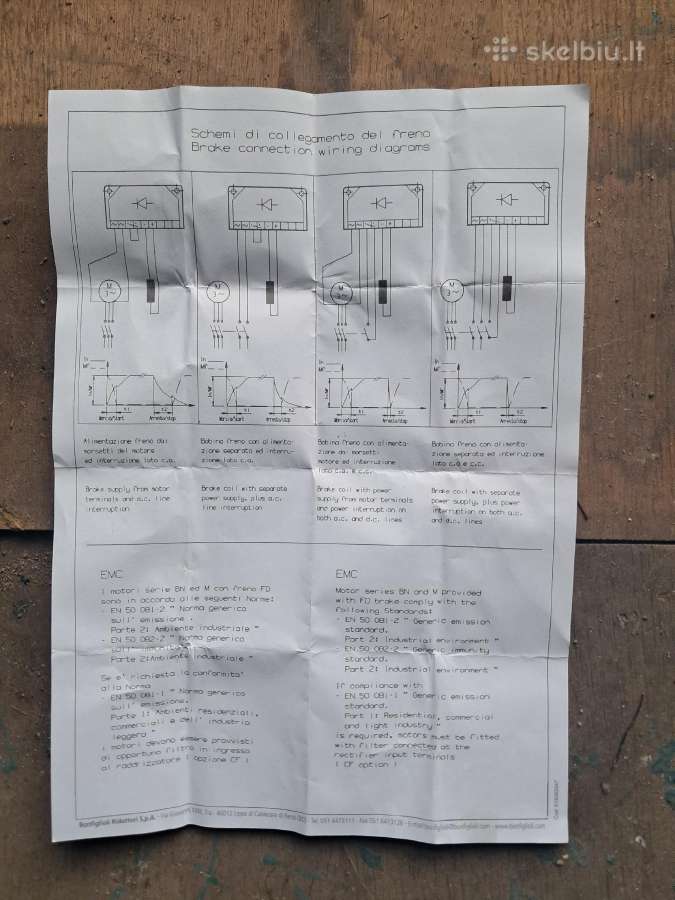 skelbiu.lt
Schemi di collegamento del freno
Brake connection wiring diagrams
M
3~
M
3~
M
3~
M
3~
In
MF
t1
t2
Marcia/Start
Arresto/stop
t1
t2
Marcia/Start
Arresto/stop
In
MF
t1
t2
Marcia/Start
Arresto/stop
t1
t2
Marcia/Start
Arresto/stop
Alimentazione freno dai
morsetti del motore
ed interruzione lato c.a.
Brake supply from motor
terminals and a.c. line
interruption
Bobina freno con alimenta-
zione separata ed interru-
zione lato c.a.
Brake coil with separate
power supply, plus a.c.
line interruption
Bobina freno con alimenta-
zione dai morsetti
motore ed interruzione
lato c.a. e c.c.
Brake coil with power
supply from motor terminals
and power interruption on
both a.c. and d.c. lines
Bobina freno con alimenta-
zione separata ed interruzione
lato c.a e c.c.
Brake coil with separate
power supply, plus power
interruption on both a.c.
and d.c. lines
EMC
I motori serie BN ed M con freno FD
sono in accordo alle seguenti Norme:
- EN 50 081-2 " Norma generica
sull' emissione.
Parte 2: Ambiente industriale "
- EN 50 082-2 " Norma generica
sull' immunita'.
Parte 2:Ambiente industriale "
Se e' richiesta la conformita'
alla Norma
- EN 50 081-1 " Norma generica
sull' emissione.
Parte 1: Ambienti residenziali,
commerciali e dell' industria
leggera "
i motori devono essere provvisti
di opportuno filtro in ingresso
al raddrizzatore ( opzione CF )
EMC
Motor series BN and M provided
with FD brake comply with the
following Standards:
- EN 50 081-2 " Generic emission
standard.
Part 2: Industrial environment "
- EN 50 082-2 " Generic immunity
standard.
Part 2: Industrial environment "
If compliance with
- EN 50 081-1 " Generic emission
standard.
Part 1: Residential, commercial
and light industry "
is required, motors must be fitted
with filter connected at the
rectifier input terminals
( CF option )
Bonfiglioli Riduttori S.p.A. - Via Giovanni XXIII, - 40012 Lippo di Calderara di Reno (BO) - Tel. 051 6473111 - Fax 051 6473126 - bonfiglioli@bonfiglioli.com - www.bonfiglioli.com